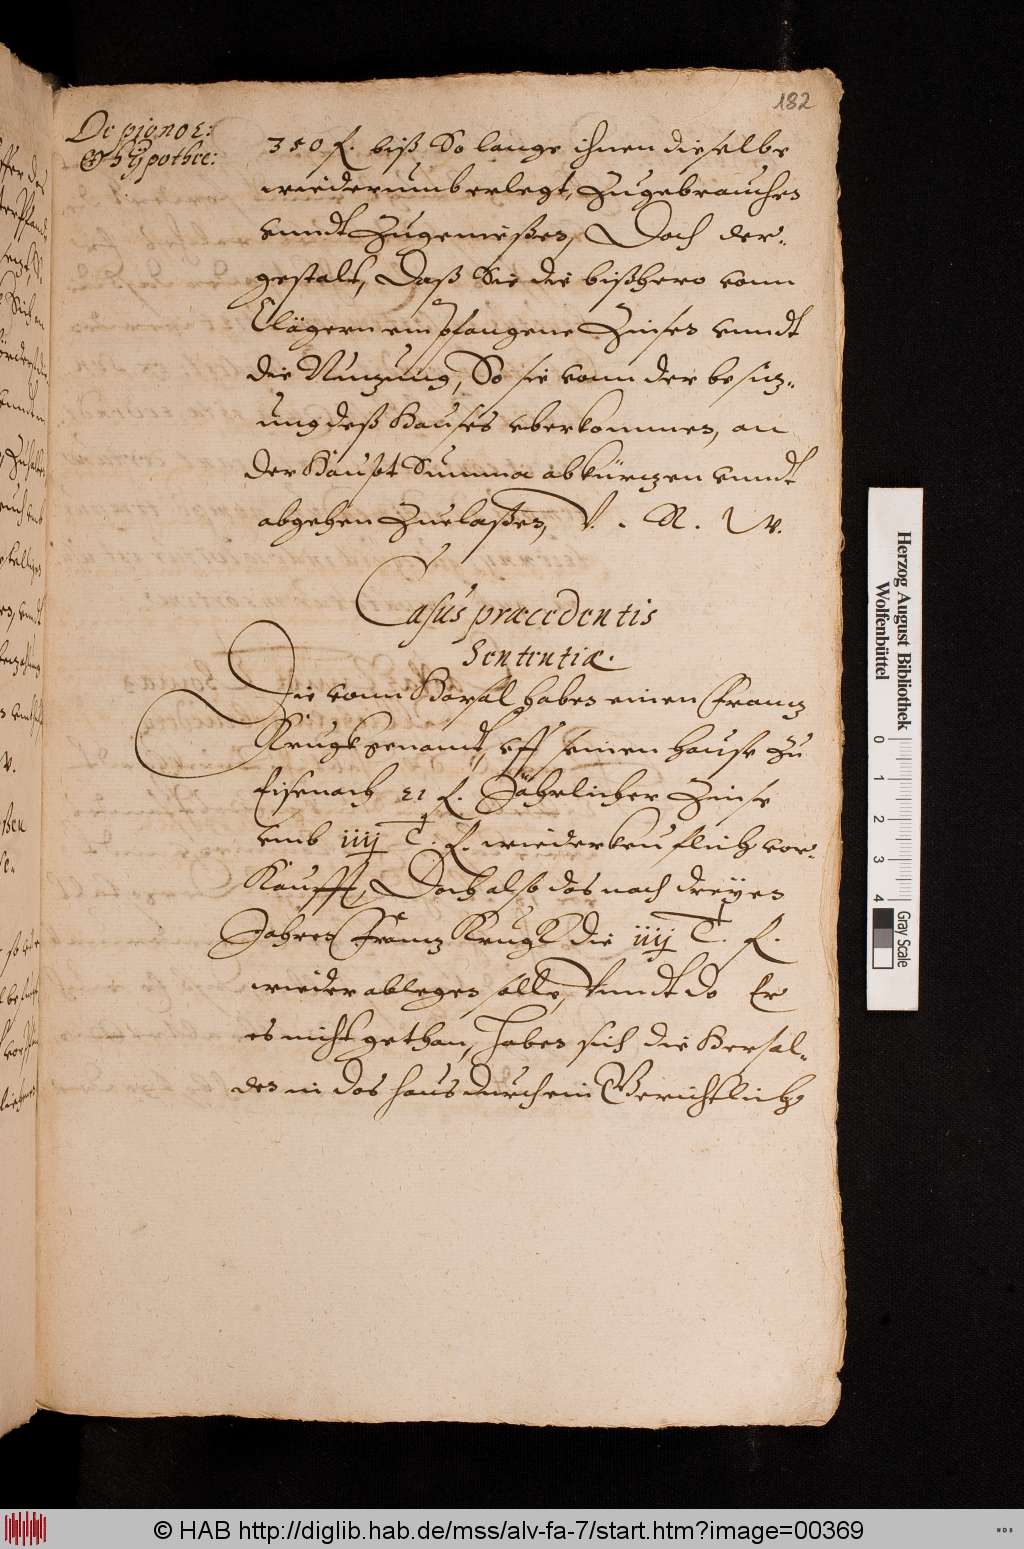 182
De pignor:
& hÿpothec:
350 f. biß So lange ihnen dieselbe
wiederumb erlegt, Zugebrauchen
vnndt Zugenießen, Doch der-
gestalt, Daß Sie die bißhero vonn
Clägern empfangene Zinsen vnndt
die Nutzung, So sie vonn der besitz-
ung deß Hauses vberkommen, an
der Haupt Summa abkürtzen vnndt
abgehen Zuelaßen, V. R. W.
Casus præcedentis
Sententiæ.
Die vonn haben einen Frantz
Krugk genandt, vff seinen hause Zu
Eisenach 21 f. Jährlicher Zinse
vmb iiij C. f. wiederkeuflich vor-
Kaufft, Doch also das nach dreyen
Jahren Frantz Krugk die iiij C. f.
wieder ablegen solle, Vnndt do Er
es nicht gethan, haben sich die
den in das haus durch ein Gerichtlich
Herzog August Bibliothek
Wolfenbüttel
0 1 2 3 4
Gray Scale
© HAB http://diglib.hab.de/mss/alv-fa-7/start.htm?image=00369